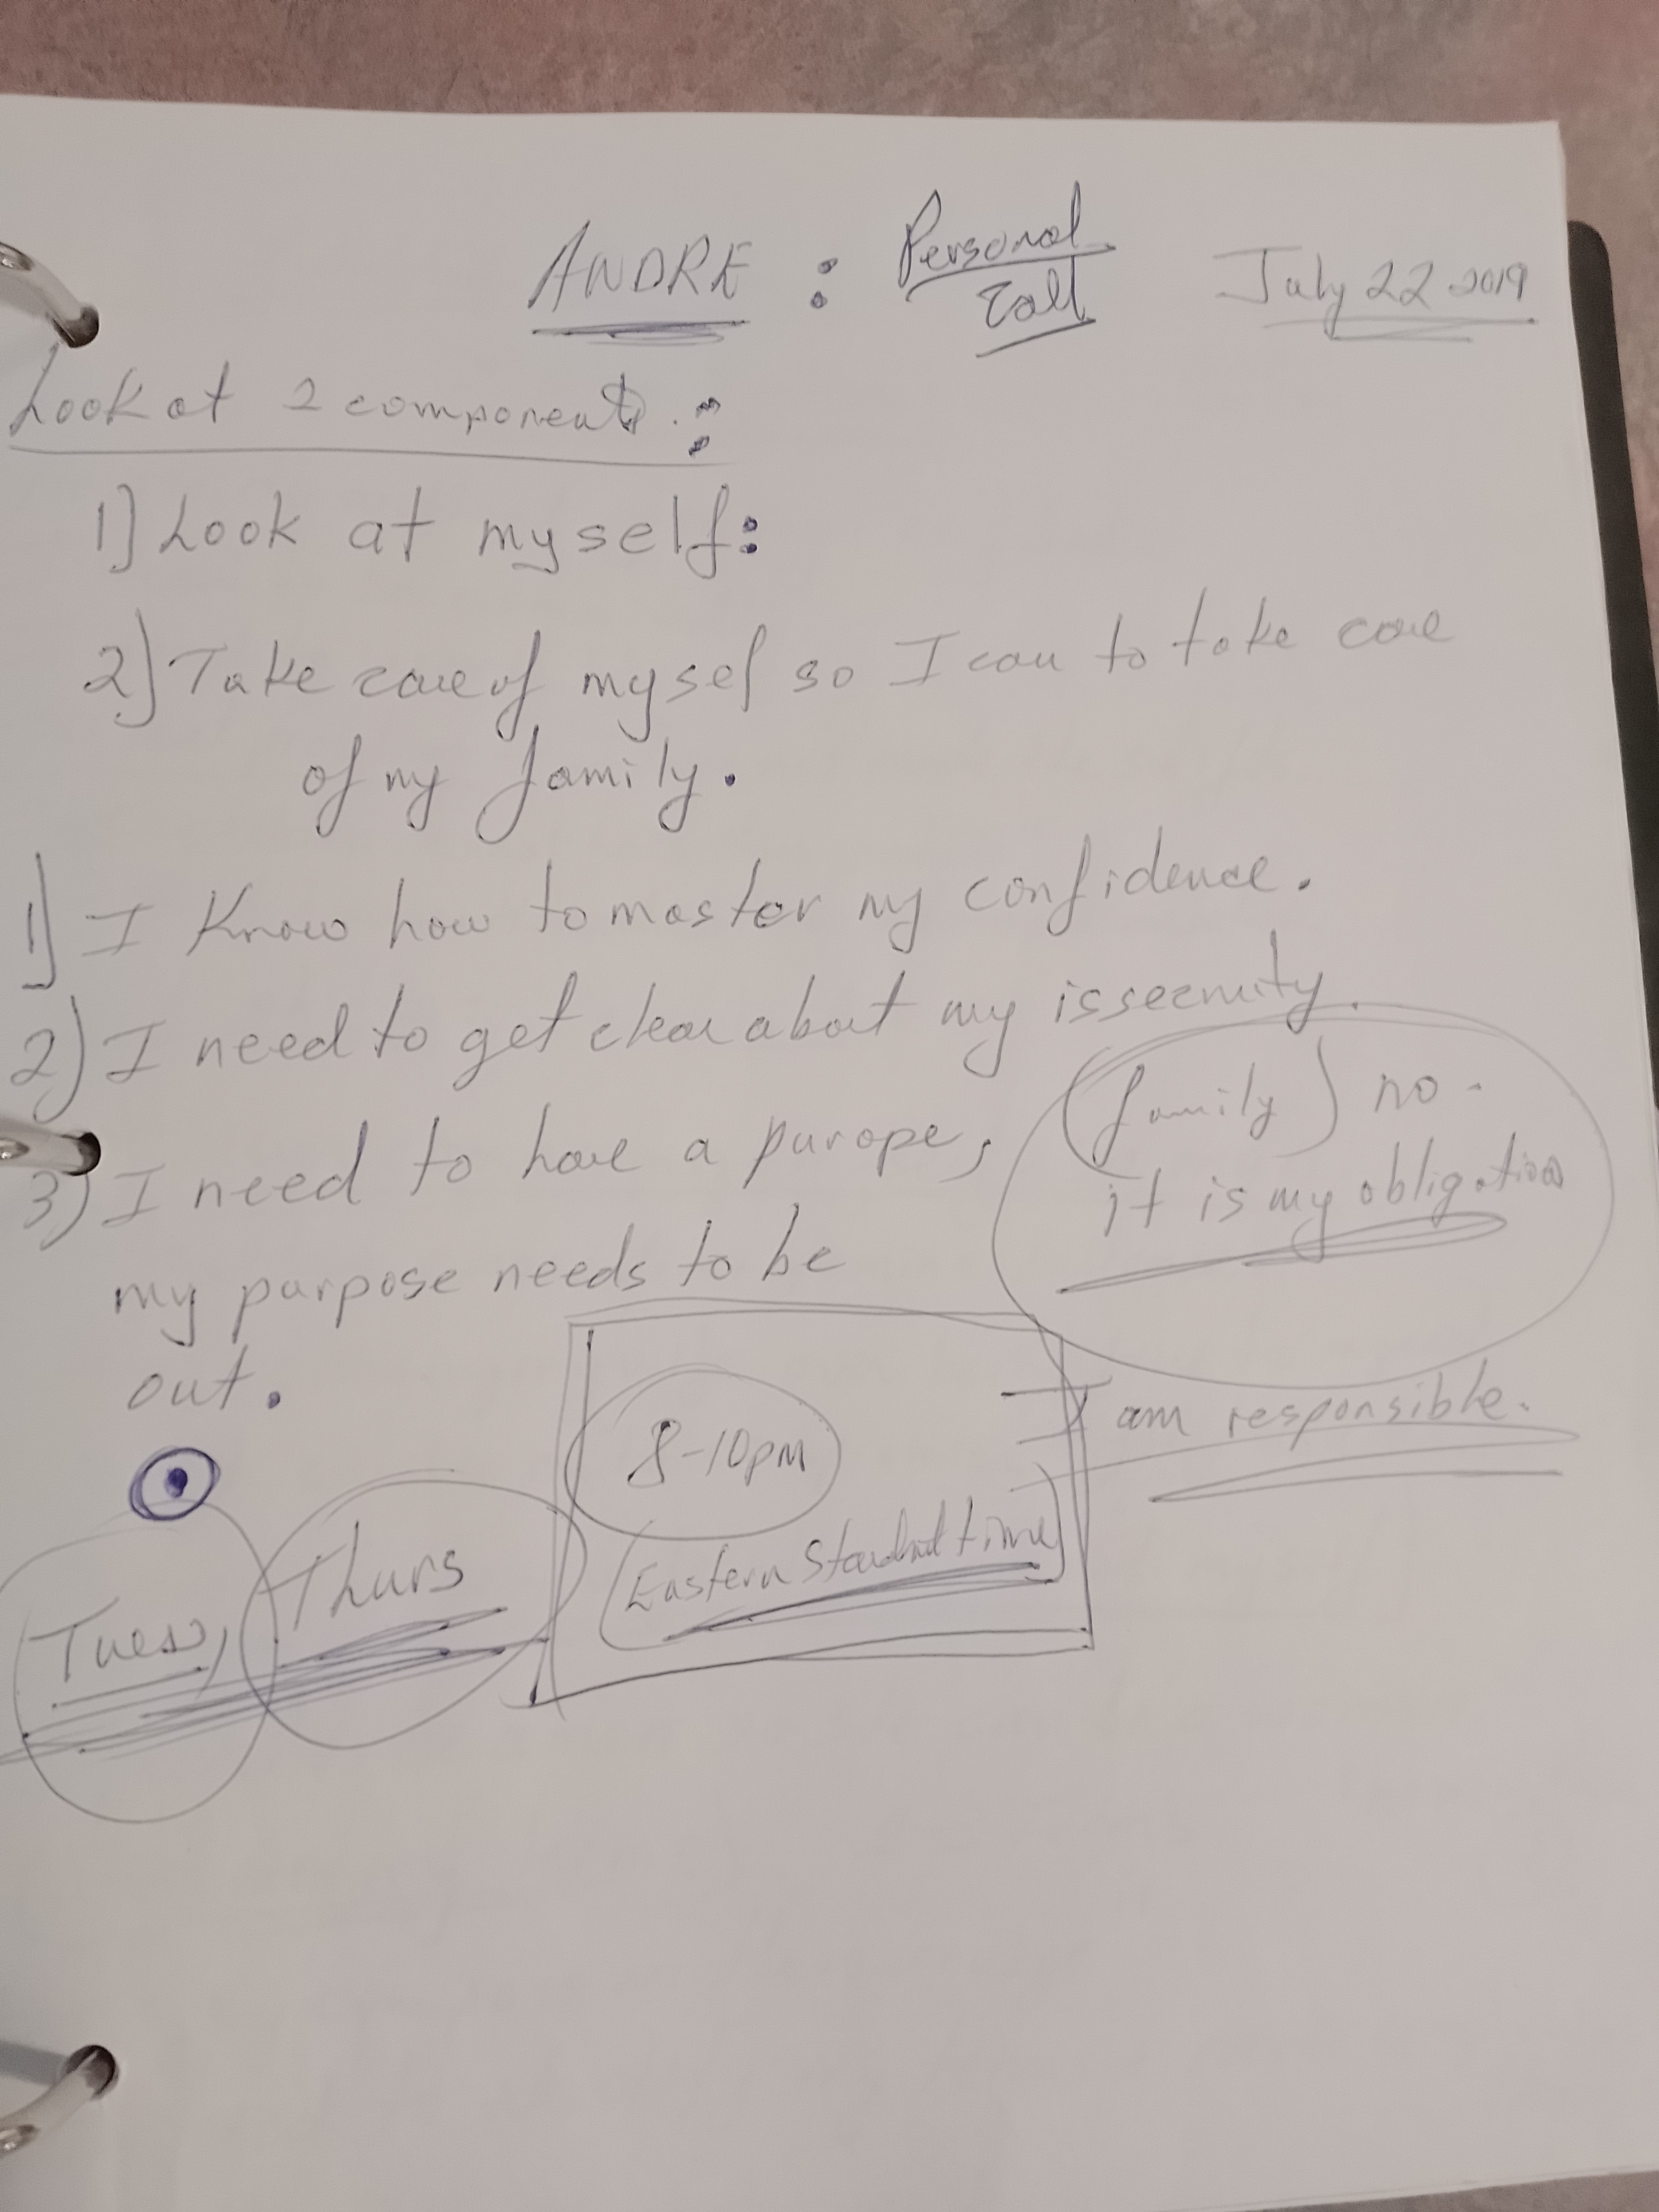 ANDRE : Personal Call July 22 2019
Look at 2 components :
1) Look at myself:
2) Take care of mysef so I can to take care
of my family.
1) I Know how to master my confidence.
2) I need to get clear about my issecruity.
3) I need to have a purope,
(family) no -
it is my obligation
my purpose needs to be
out.
I am responsible.
8-10pm
(Eastern Standard time)
Tues, Thurs